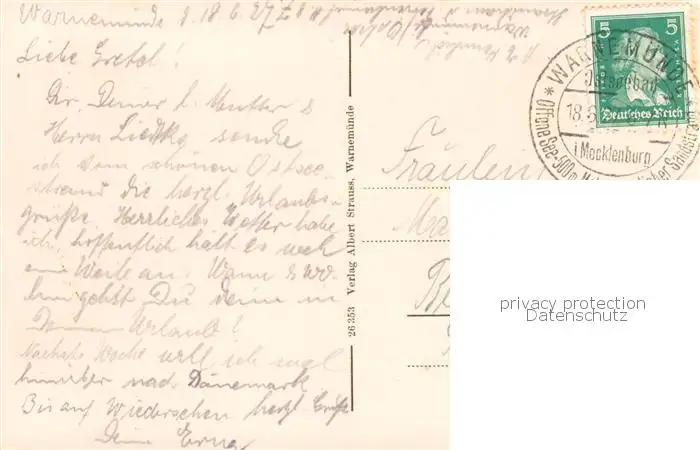 Warnemünde d. 18 6. 27
Liebe Gretel!
Dir, Deiner l. Mutter &
Herrn Liedtkg sende
ich vom schönen Ostsee-
strand die herzl. Urlaubs-
grüße. Herrliches Wetter habe
ich, hoffentlich hält es noch
eine Weile an. Wann & wo-
hin gehst Du denn in
Deinen Urlaub!
Nächste Woche will ich mal
hinüber nach Dänemark
Bis auf Wiedersehen herzl Grüße
Deine Erna
26 353 Verlag Albert Strauss, Warnemünde
5 5
Deutsches Reich
* WARNEMÜNDE
Ostseebad
18.6
i Mecklenburg
Offene See-500m
Fräulein
privacy protection
Datenschutz